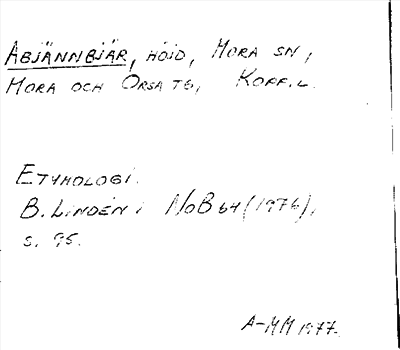 ABJÄNNBJÄR, HÖJD, MORA SN,
MORA OCH ORSA TG, KOPP.L.
ETYMOLOGI.
B. LINDÉN I NoB 64 (1976),
S. 95.
A-MM 1977.